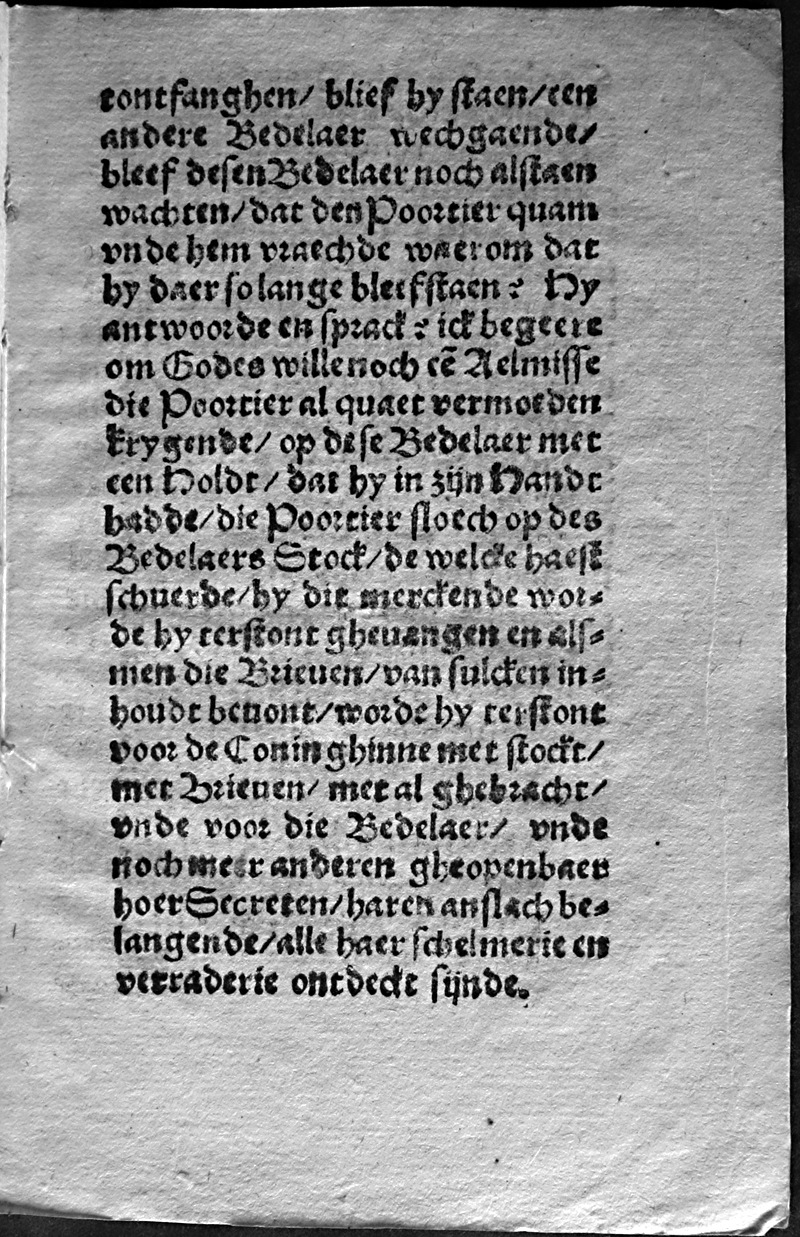 tontfanghen/ blief by staen/een
andere Bedelaer wechgaende/
bleef desen Bedelaer noch alstaen
wachten/dat den Poortier quam
vnde hem vraechde waerom dat
hy daer so lange bleefstaen? Hy
antwoorde en sprack? ick begeere
om Godes wille noch eē Aelmisse
die Poortier al quaet vermoeden
krygende/ op dese Bedelaer met
een Holdt/ dat hy in zijn Handt
hadde/die Poortier sloech op des
Bedelaers Stock/de welcke haest
schuerde/hy die merckende wor⸗
de hy terstont gheuangen en als⸗
men die Brieuen/van sulcken in⸗
houdt beuont/worde hy terstont
voor de Coninghinne met stockt/
met Brieuen/ met al ghebracht/
vnde voor die Bedelaer/ vnde
noch meer anderen gheopenbaert
hoer Secreten/haren anslach be⸗
langende/alle haer schelmerie en
verraderie ontdeckt sijnde.